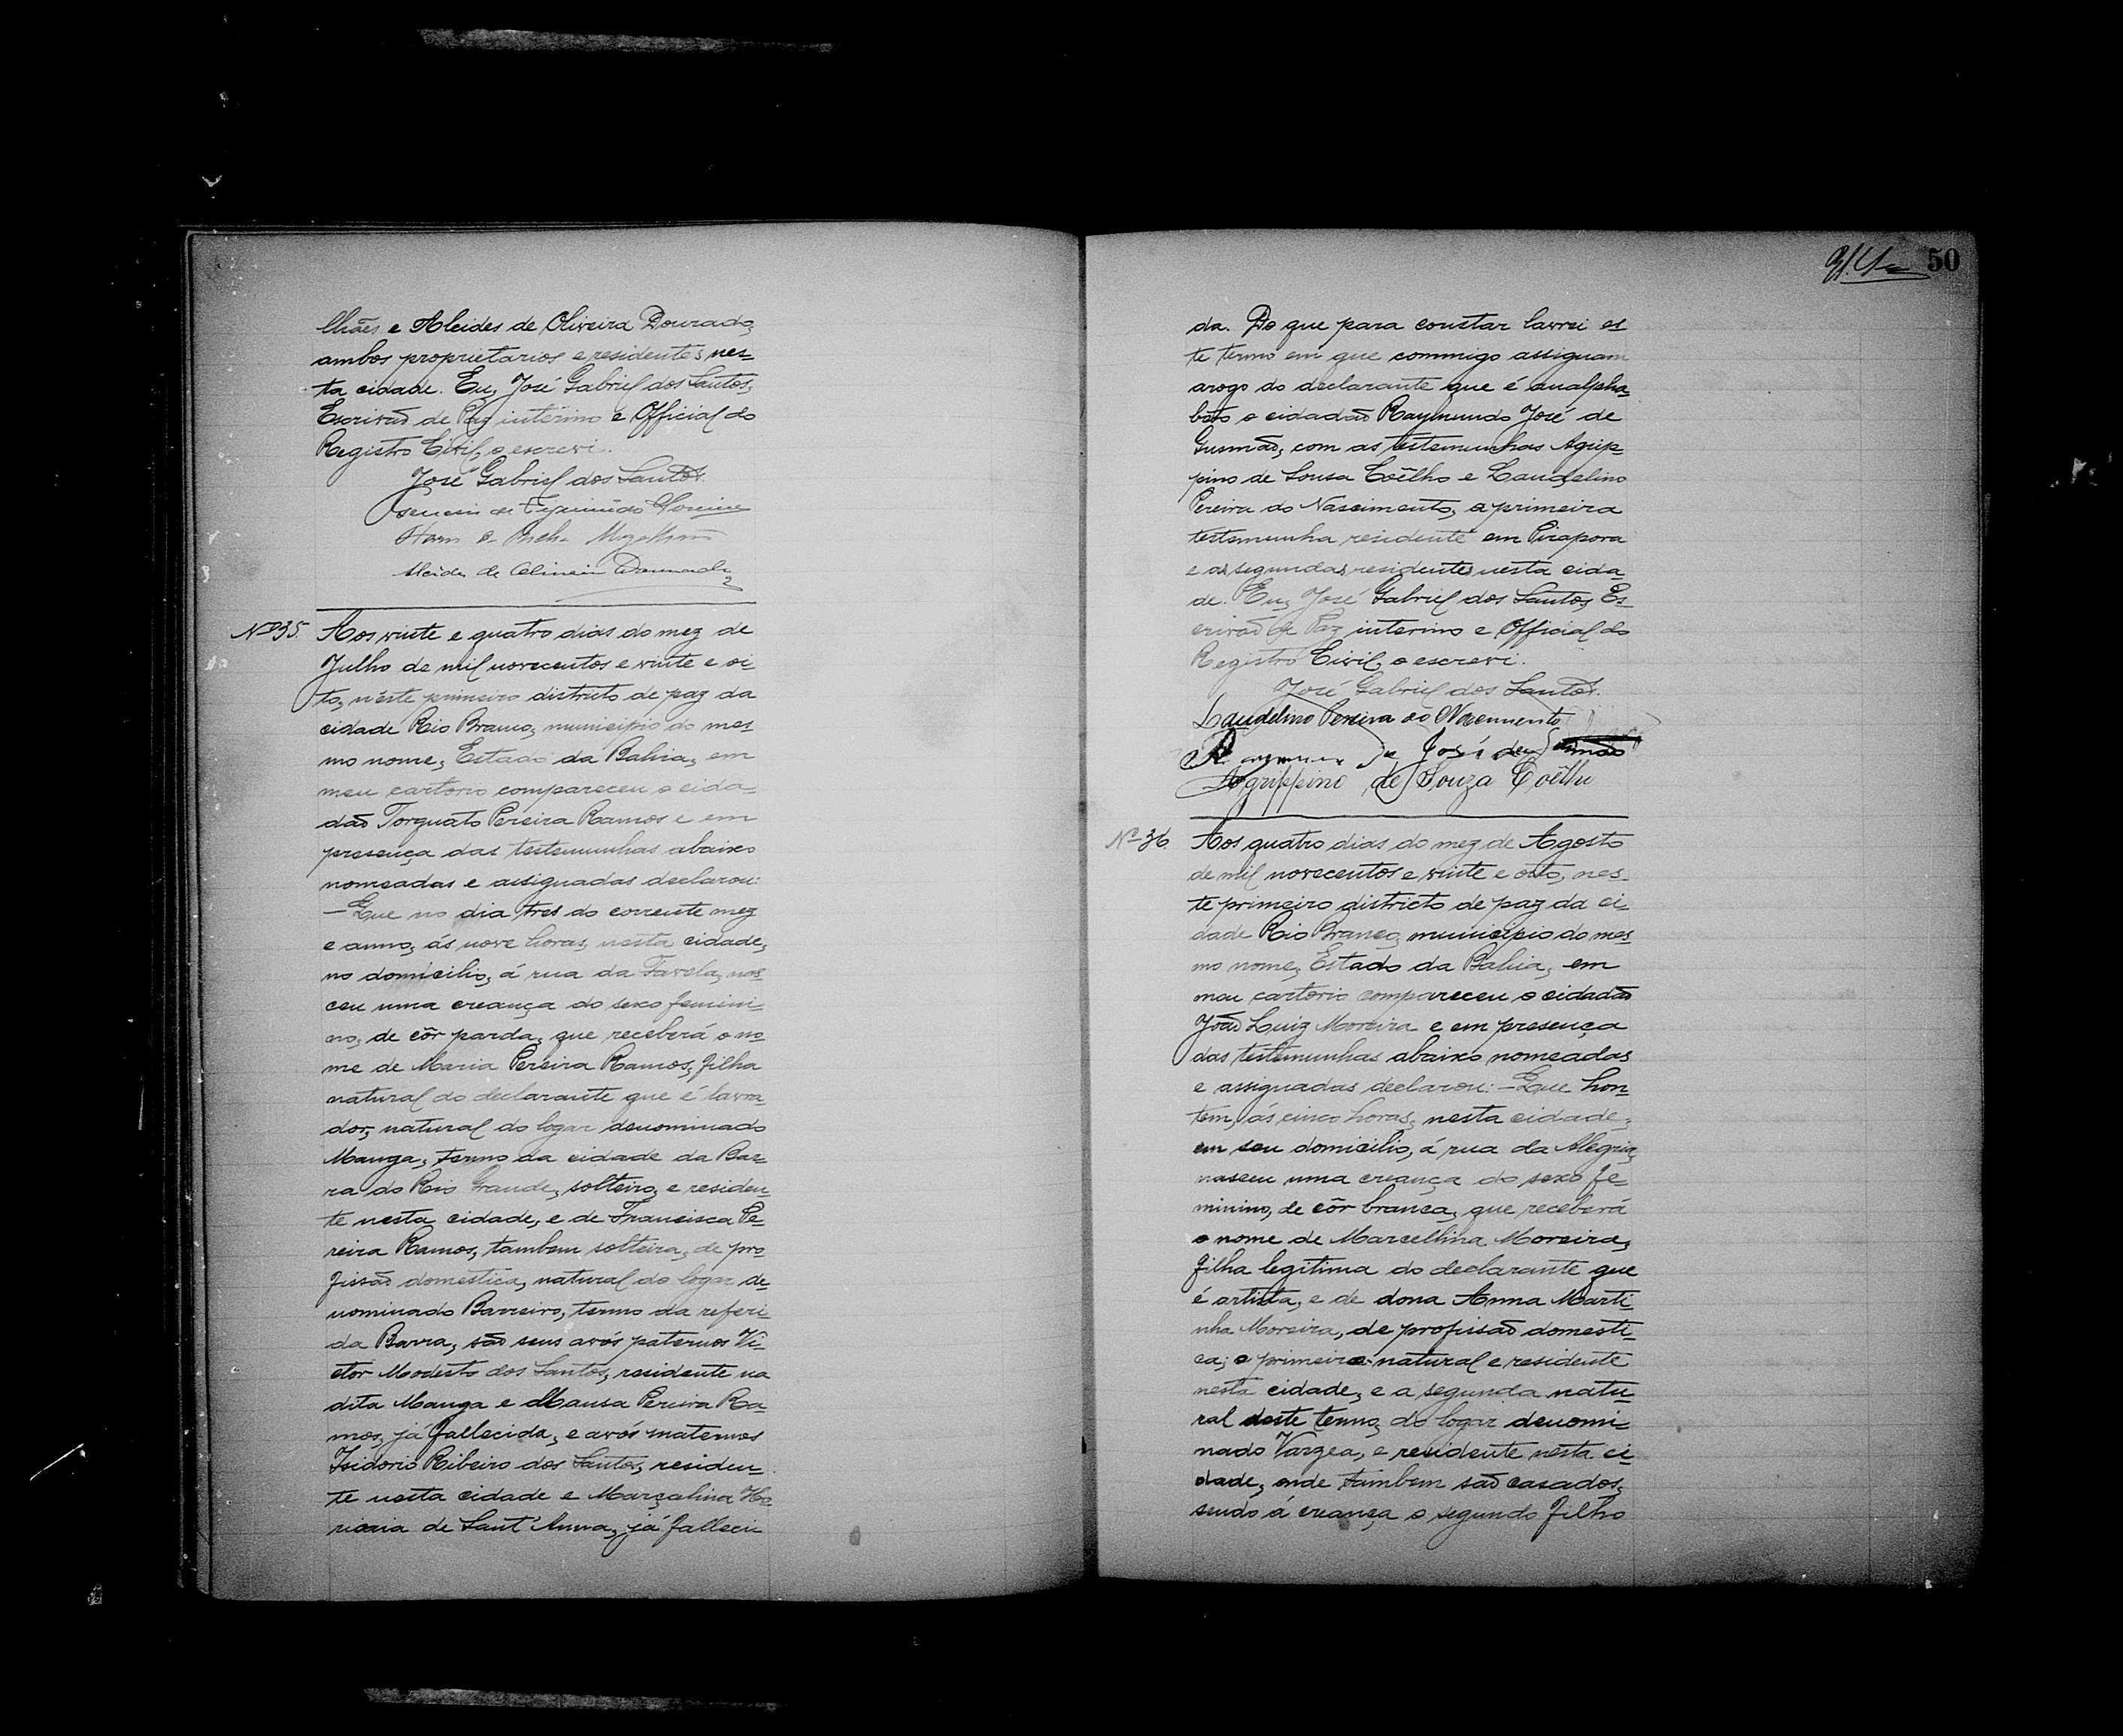 lhães e Alcides de Oliveira Dourado,
ambos proprietarios e residentes nes-
ta cidade. Eu, José Gabriel dos Santos,
Escrivão de Paz interino e Official do
Registro Civil, o escrevi.
José Gabriel dos Santos.
de Figueiredo
Alcides de Oliveira Dourado
Nº 35. Aos vinte e quatro dias do mez de
Julho de mil novecentos e vinte e oi-
to, néste primeiro districto de paz da
cidade Rio Branco, municipio do mes-
mo nome, Estado da Bahia, em
meu cartorio compareceu o cida-
dão Torquato Pereira Ramos e em
presença das testemunhas abaixo
nomeadas e assignadas declarou:
—Que no dia tres do corrente mez
e anno, ás nove horas, nesta cidade,
no domicilio, á rua da Favela, nas-
ceu uma creança do sexo femini-
no, de côr parda, que receberá o no-
me de Maria Pereira Ramos, filha
natural do declarante que é lavra-
dor, natural do logar denominado
Manga, termo da cidade da Bar-
ra do Rio Grande, solteiro, e residen-
te nesta cidade, e de Francisca Pe-
reira Ramos, tambem solteira, de pro-
fissão domestica, natural do logar de-
nominado Barreiro, termo da referi-
da Barra, são seus avós paternos Vi-
ctor Modesto dos Santos, residente na
dita Manga e Mansa Pereira Ra-
mos, já fallecida, e avós maternos
Isidorio Ribeiro dos Santos, residen-
te nesta cidade e Marçalina Ho-
de Sant'Anna, já falleci-
50
da. Do que para constar lavrei es-
te termo em que commigo assignam
arogo do declarante que é analpha-
beto o cidadão Raymundo José de
Gusmão, com as testemunhas Agrip-
pino de Sousa Coêlho e Laudelino
Pereira do Nascimento, a primeira
testemunha residente em Pirapora
e as segundas residentes nesta cida-
de. Eu, José Gabriel dos Santos, Es-
crivão de Paz interino e Official do
Registro Civil, o escrevi.
José Gabriel dos Santos.
Laudelino Pereira do Nascimento
José de Gusmão
Agrippino de Souza Coêlho
Nº 36. Aos quatro dias do mez de Agosto
de mil novecentos e vinte e oito, nes-
te primeiro districto de paz da ci-
dade Rio Branco, municipio do mes-
mo nome, Estado da Bahia, em
meu cartorio compareceu o cidadão
João Luiz Moreira e em presença
das testemunhas abaixo nomeadas
e assignadas declarou: —Que hon-
tem, ás cinco horas, nesta cidade,
em seu domicilio, á rua da Alegria,
nasceu uma creança do sexo fe-
minino, de côr branca, que receberá
o nome de Marcellina Moreira,
filha legitima do declarante que
é artista, e de dona Anna Marti-
nha Moreira, de profissão domesti-
ca; o primeiro natural e residente
nesta cidade, e a segunda natu-
ral deste termo, do logar denomi-
nado Varzea, e residente nesta ci-
dade, onde tambem são casados,
sendo á creança o segundo filho